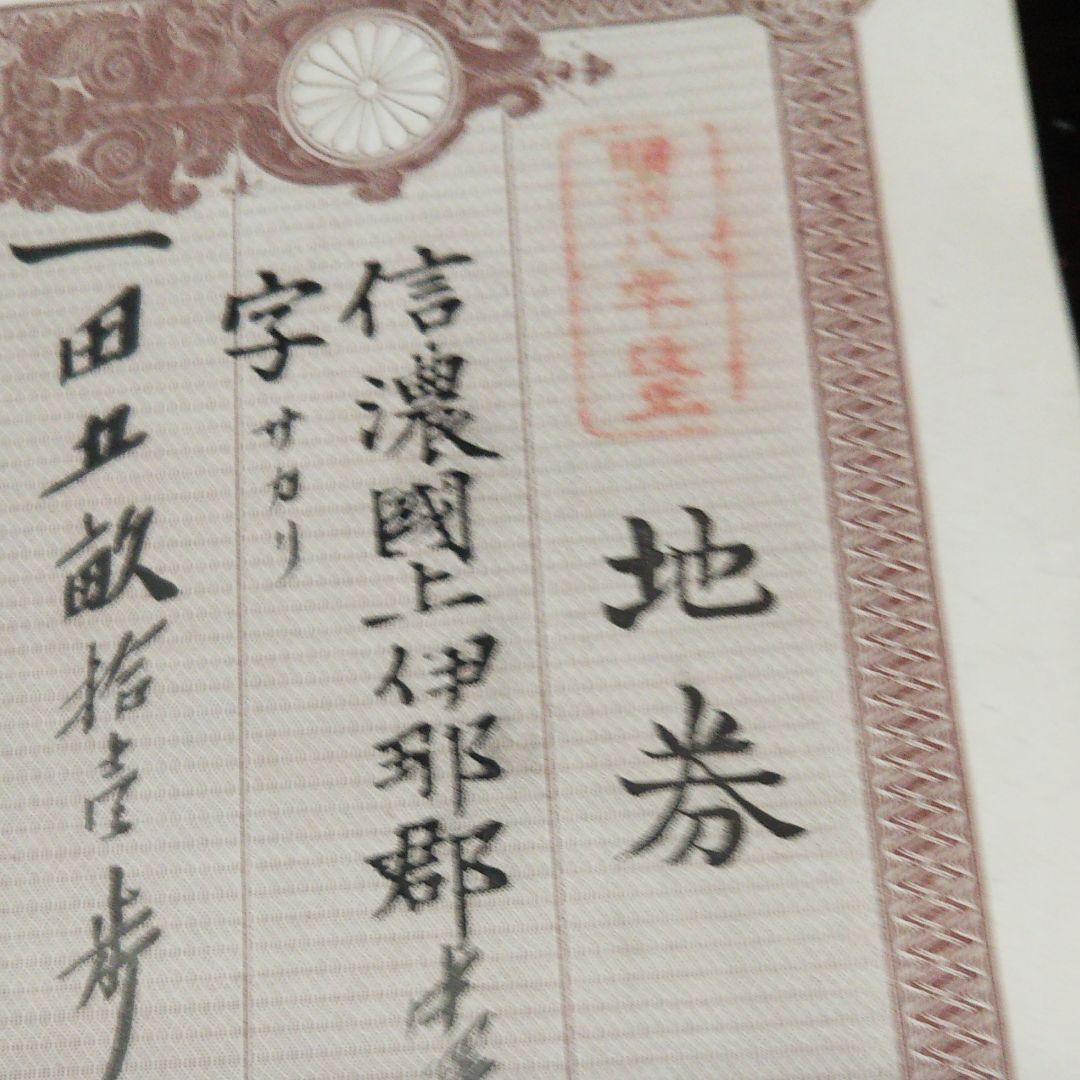 明治八年改正
地券
信濃國上伊那郡
字サカリ
一田五畝拾壹歩